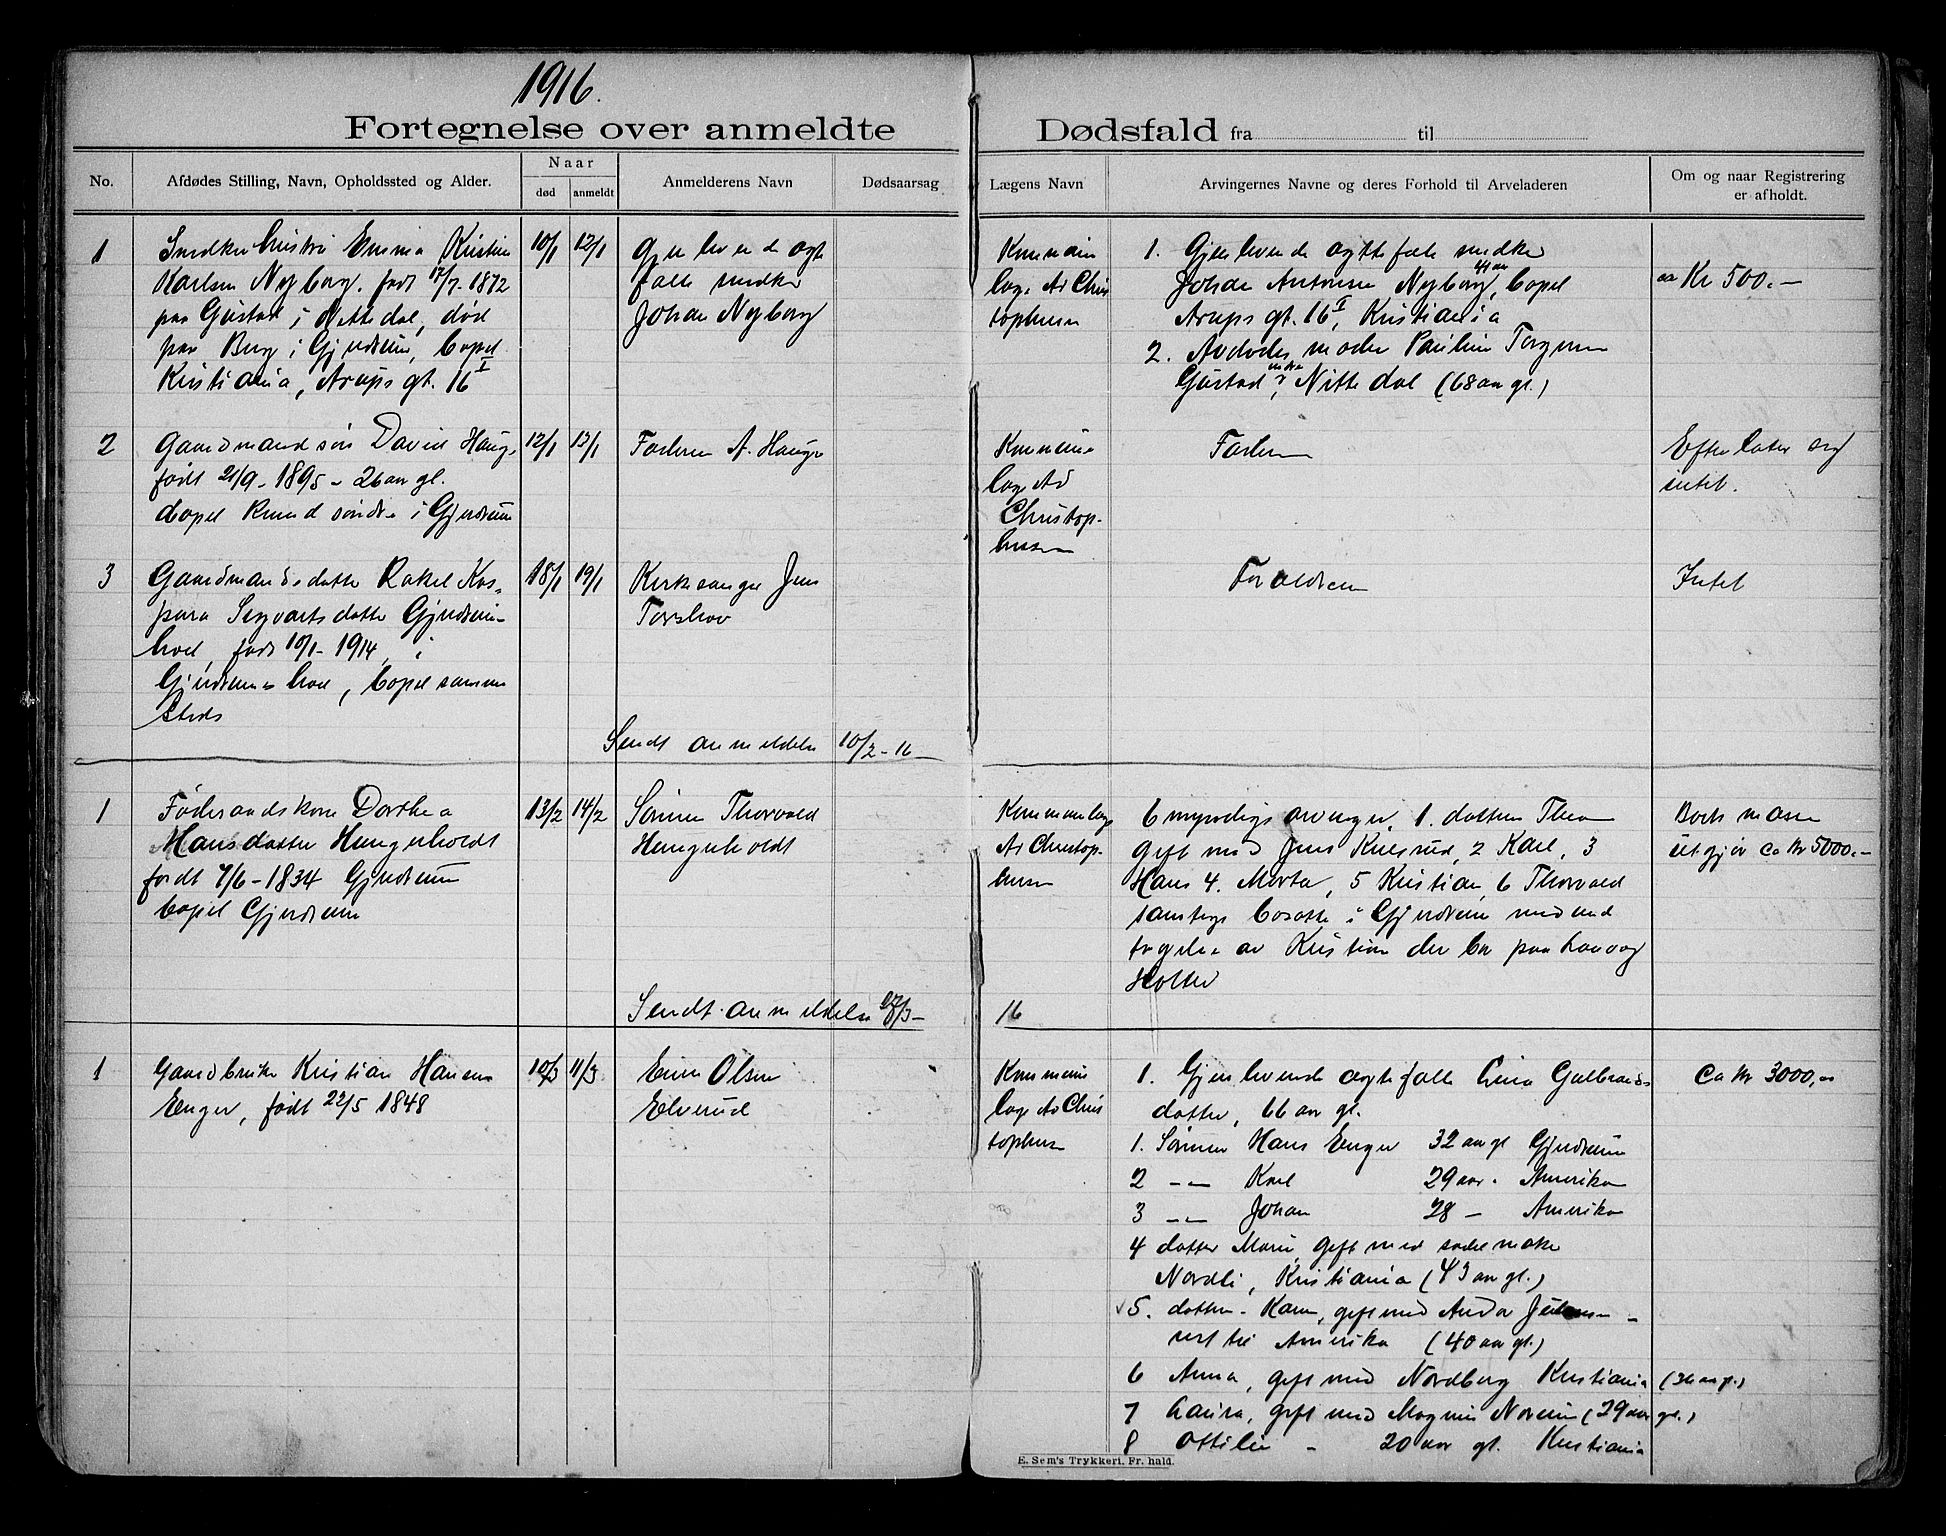 1916.
Fortegnelse over anmeldte Dødsfald fra til
No.
Afdødes Stilling, Navn, Opholdssted og Alder.
Naar
død
anmeldt
Anmelderens Navn
Dødsaarsag
Lægens Navn
Arvingernes Navne og deres Forhold til Arveladeren
Om og naar Registrering
er afholdt.
1
Snedker hustru Emma Kristine
Karlsen Nyborg. født 17/7 1872
paa Gustad i Nittedal, død
paa Berg i Gjerdrum, bopel
Kristiania, Arups gt. 16 I
10/1
12/1
Gjenlevende ægte
falle snedker
Johan Nyborg
Kommune
læge Ad Chris
tophersen
1. Gjenlevende ægtefalle snedker
Johan Antonsen Nyborg, 44 aar bopel
Arups gt. 16 I, Kristiania
2. Avdødes moder Pauline
Gustad, Nittedal (68 aar gl.)
aa Kr 500.-
2
Gaardmandssøn David Haug.
født 21/9 - 1895 - 26 aar gl.
bopel søndre i Gjerdrum
12/1
13/1
Faderen A. Haug
Kommune
læge Ad
Christop-
hersen
Faderen
Efterlater sig
intet.
3
Gaardmandsdatter Rakel Kas-
para Sigvartsdatter Gjerdrum-
hval, født 10/1 - 1914, i
Gjerdrumshval, bopel samme
steds
18/1
19/1
Kirkesanger Jens
Torshov
Forældrene
Intet
Sendt anmeldelse 10/2 - 16
1
Føderaadskone Dorthea
Hansdatter Hengerholdt
født 7/6 - 1834 Gjerdrum
bopel Gjerdrum
13/2
14/2
Sønnen Thorvald
Hengerholdt
Kommunelæge
Ad Christop-
hersen
6 myndige arvinger, 1. datteren Thea
gift med Jens Kulsrud, 2 Karl, 3
Hans 4. Marta, 5 Kristian, 6 Thorvald
samtlige bosatte i Gjerdrum med und
tagelse av Kristian der bor paa
Holter
Boets masse
utgjør ca kr 5000.-
Sendt anmeldelse 27/3 - 16
1
Gaardbruker Kristian Hansen
Enger, født 22/5 1848
10/3
11/3
Olsen
Elverud
Kommune
læge Ad Chris
tophersen
1. Gjenlevende ægtefalle Lina Gulbrands-
datter, 66 aar gl.
1. Sønnen Hans Enger 32 aar gl Gjerdrum
2 -"- Karl 29 aar - Amerika
3 -"- Johan 28 - Amerika
4 datter Marie, gift med sadelmaker
Nordli, Kristiania (43 aar gl.)
5. datteren - Karen, gift med
reist til Amerika (40 aar gl.)
6 Anna, gift med Nordberg Kristiania (36 aar gl.)
7 Laura, gift med Magnus Noreim (29 aar gl.)
8 Ottilie - 20 aar gl. Kristiania
Ca kr 3000,-
E. Sem's Trykkeri. Fr.hald.